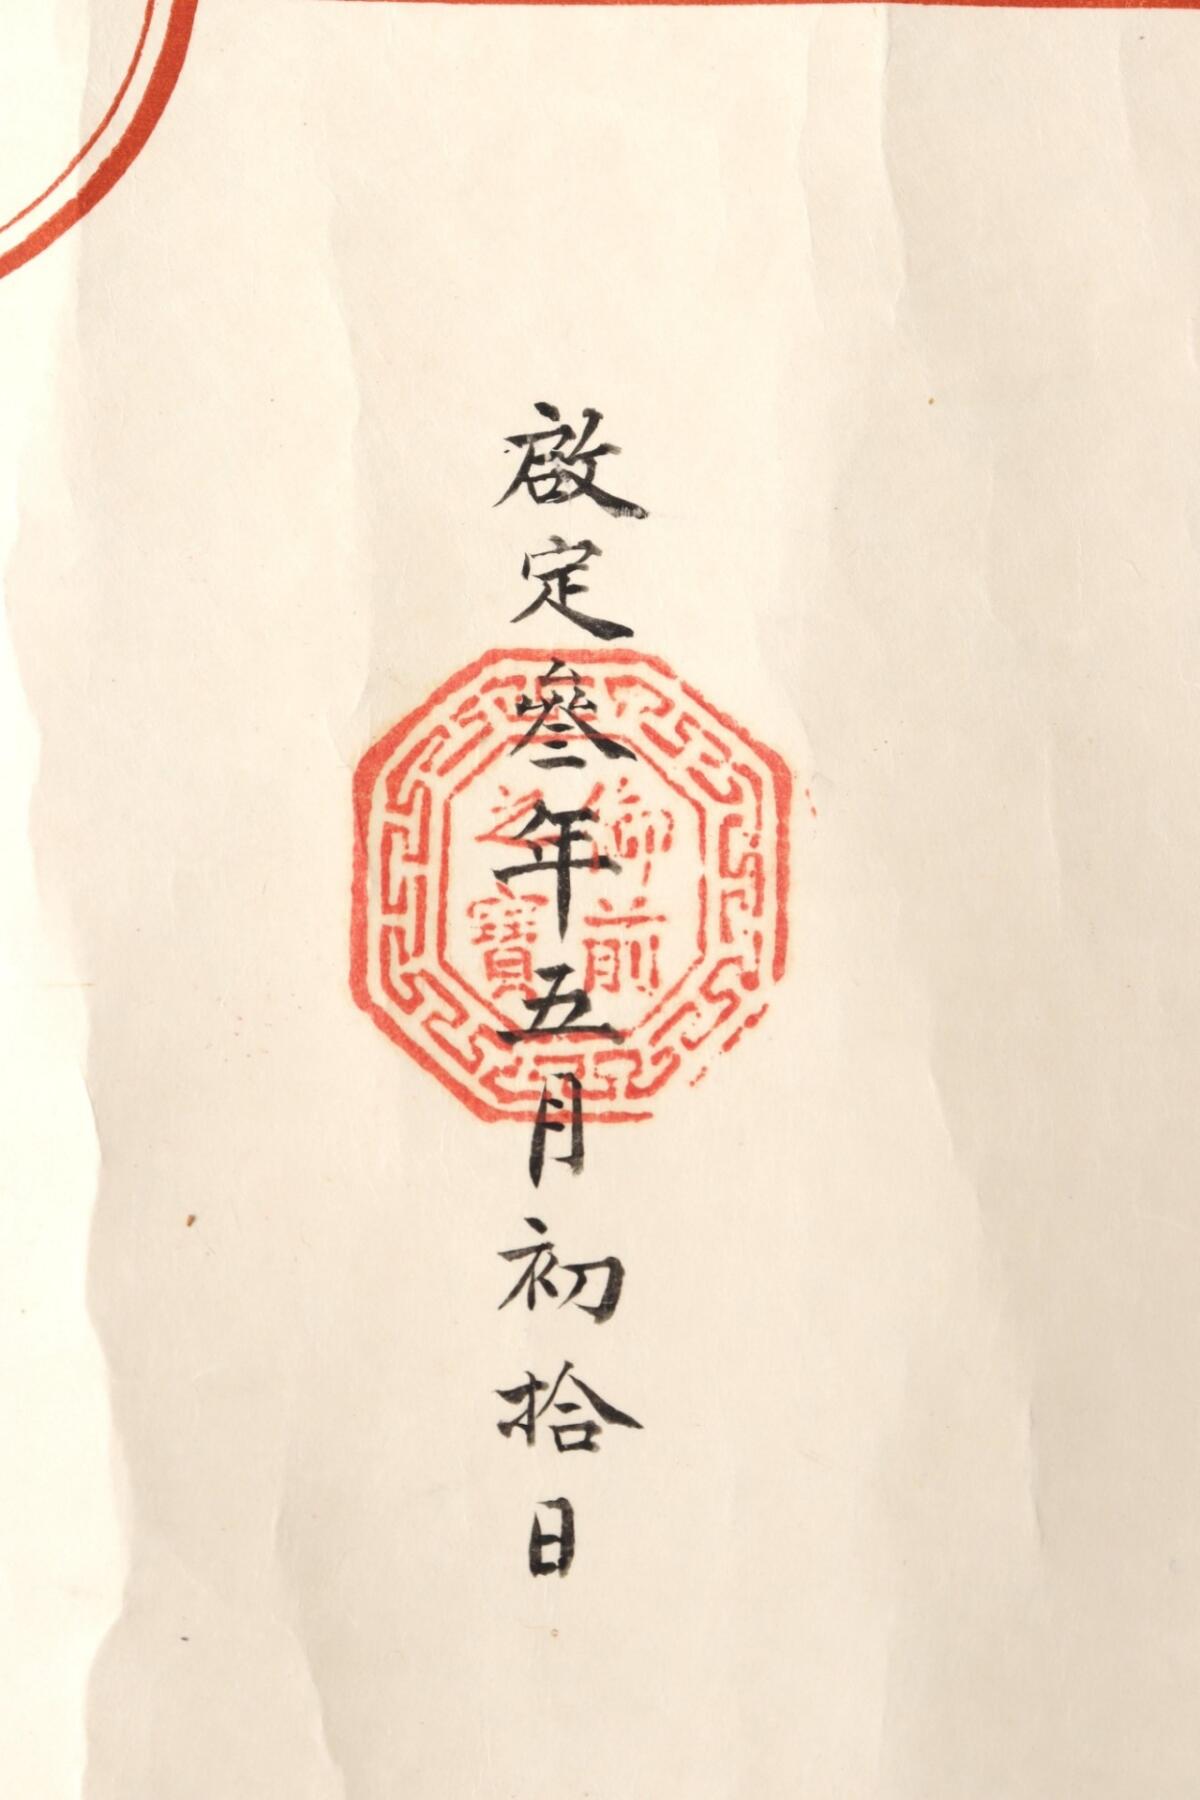 啟定叁年五月初拾日
御前
之寶